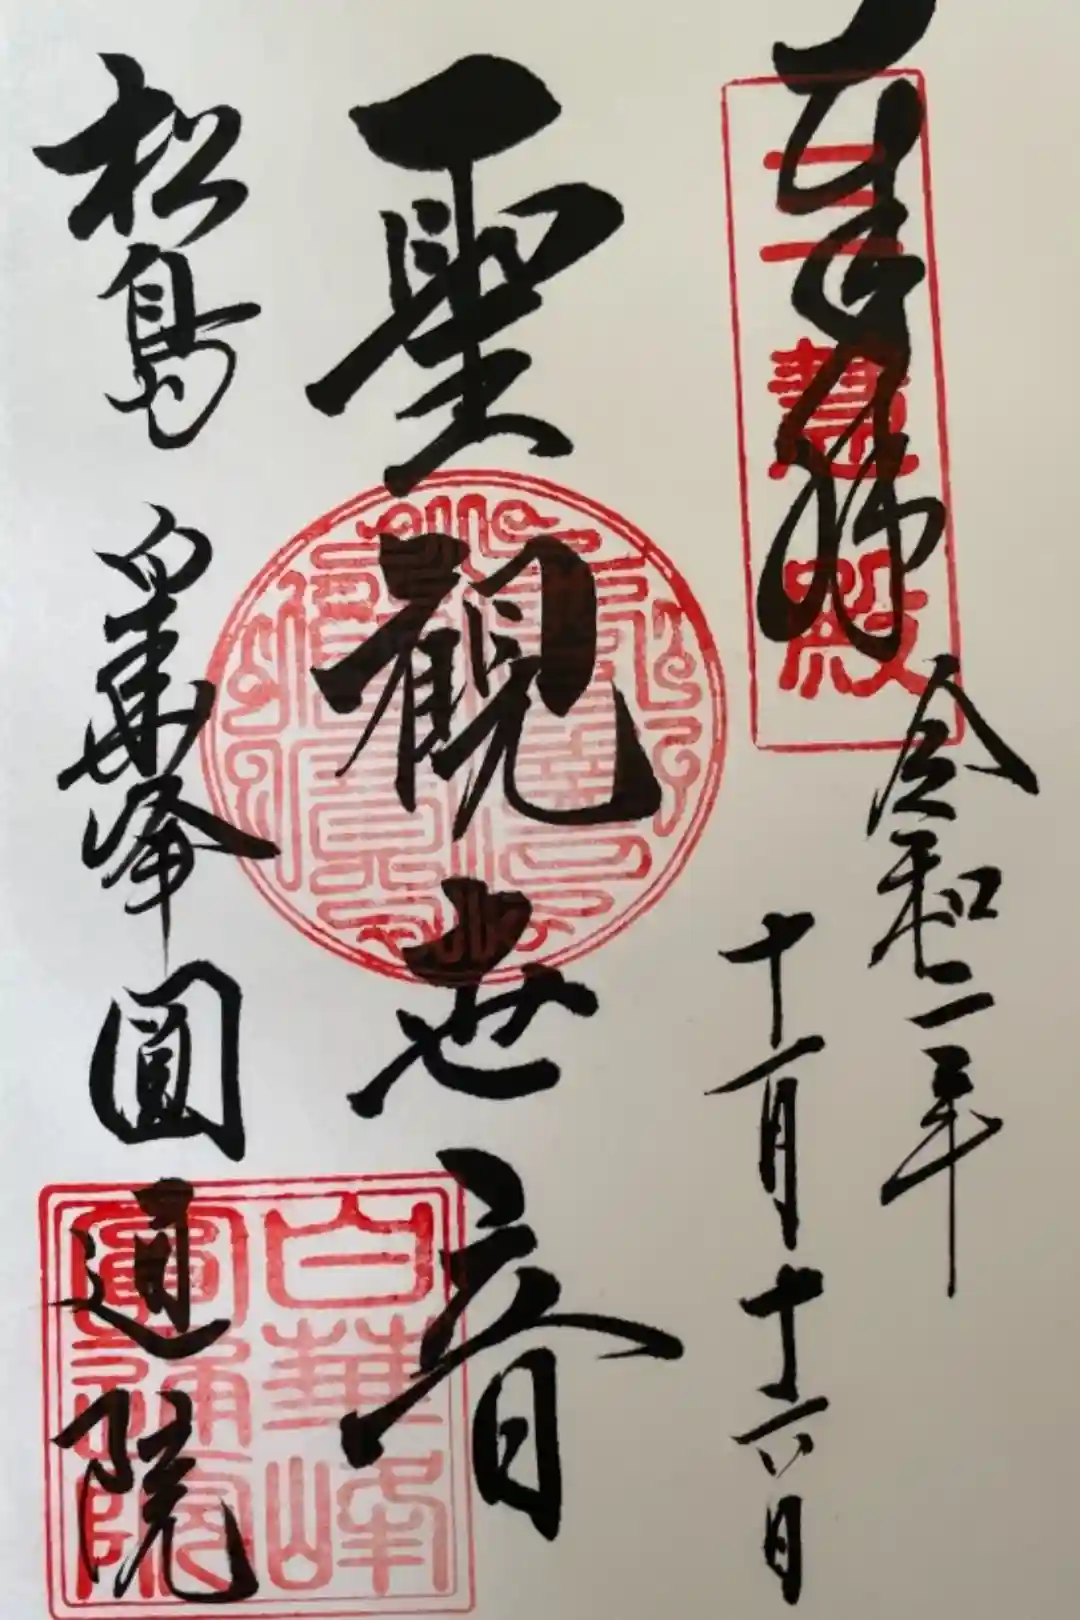 奉拝
三慧殿
令和二年
十一月十六日
聖観世音
松島 白華峰圓通院
白華峰
圓通院